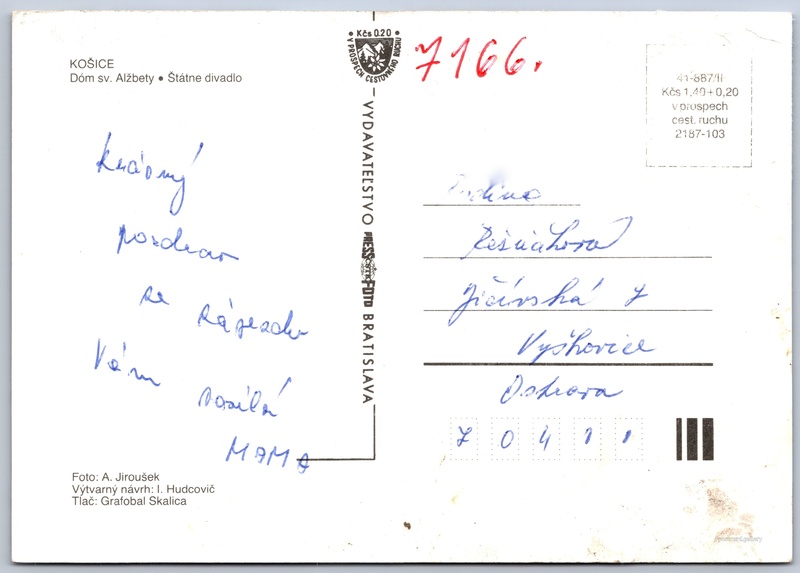 KOŠICE
Dóm sv. Alžbety • Štátne divadlo
Krásný
pozdrav
ze zájezdu
Vám posílá
MAMA
Foto: A. Jiroušek
Výtvarný návrh: I. Hudcovič
Tlač: Grafobal Skalica
Kčs 0.20
V PROSPECH CESTOVNÉHO RUCHU
VYDAVATEĽSTVO PRESSFOTO BRATISLAVA
7166.
41-887/II
Kčs 1,40+0,20
v prospech
cest. ruchu
2187-103
Rodina
7
Vyškovice
Ostrava
70411